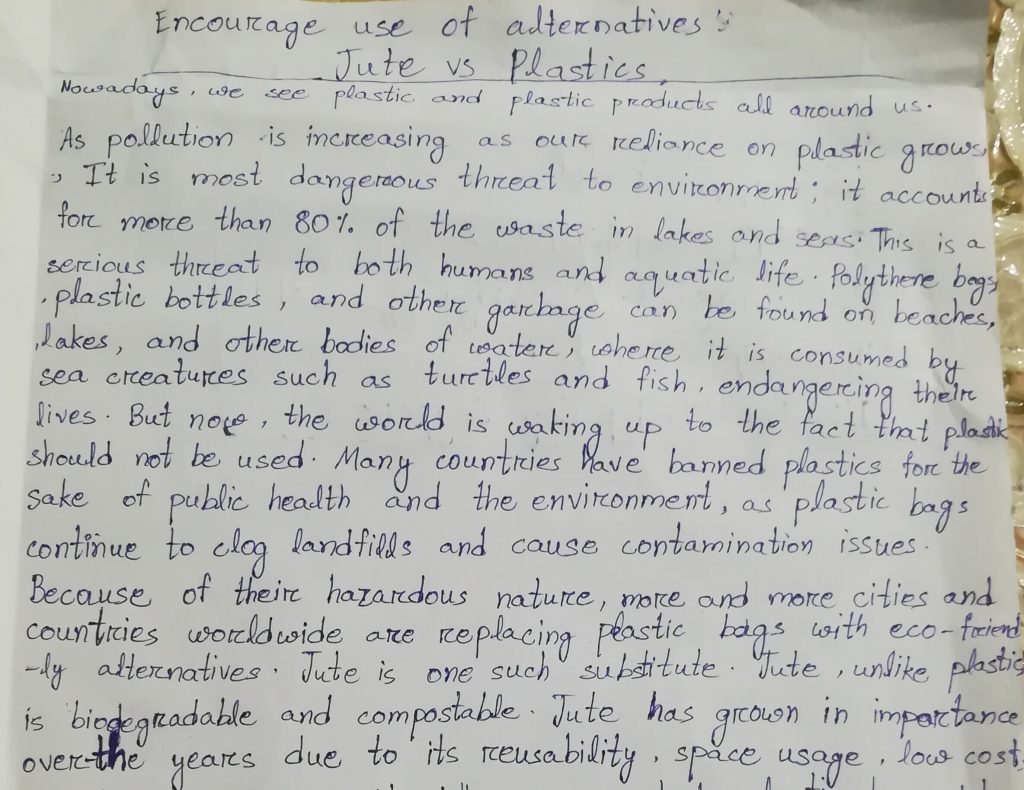 Encourage use of alternatives:
Jute vs Plastics.
Nowadays, we see plastic and plastic products all around us.
As pollution is increasing as our reliance on plastic grows,
, It is most dangerous threat to environment; it accounts
for more than 80% of the waste in lakes and seas. This is a
serious threat to both humans and aquatic life. Polythene bags
, plastic bottles, and other garbage can be found on beaches,
lakes, and other bodies of water, where it is consumed by
sea creatures such as turtles and fish, endangering their
lives. But now, the world is waking up to the fact that plastic
should not be used. Many countries have banned plastics for the
sake of public health and the environment, as plastic bags
continue to clog landfills and cause contamination issues.
Because of their hazardous nature, more and more cities and
countries worldwide are replacing plastic bags with eco-friend
-ly alternatives. Jute is one such substitute. Jute, unlike plastic
is biodegradable and compostable. Jute has grown in importance
over the years due to its reusability, space usage, low cost,